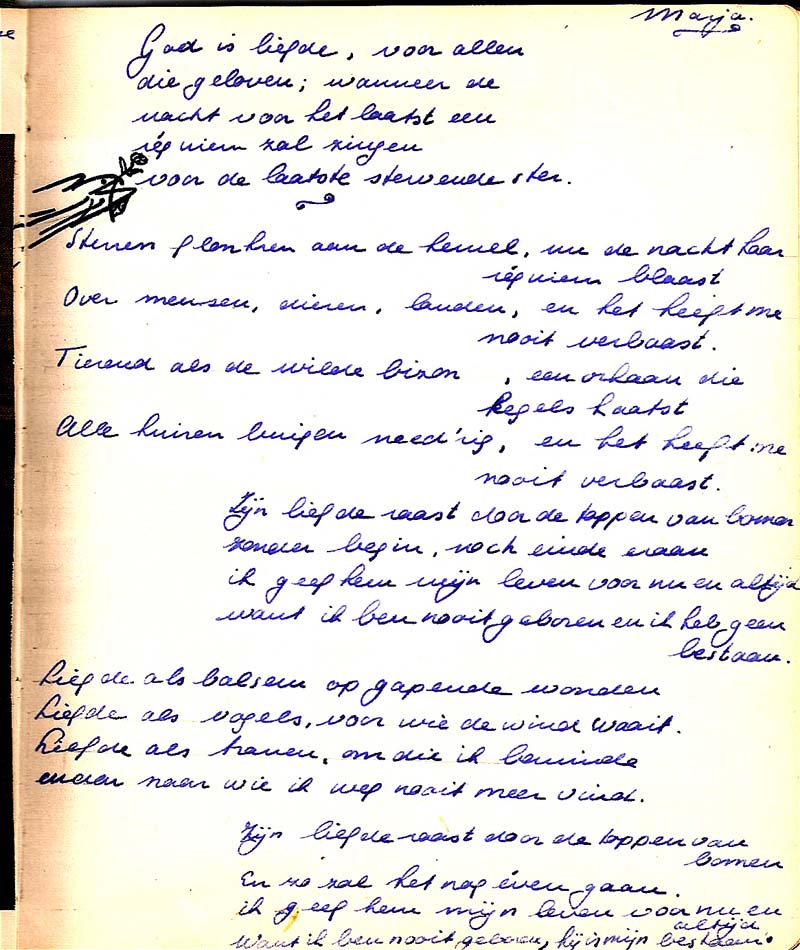 Marja.
God is liefde, voor allen
die geloven; wanneer de
nacht voor het laatst een
réquiem zal zingen
voor de laatste stervende ster.
Sterren flonkren aan de hemel, nu de nacht haar
réquiem blaast
Over mensen, dieren, landen, en het heeft me
nooit verbaast.
Tierend als de wilde bizon, een orkaan die
kegels haatst
Alle huizen buigen need'rig, en het heeft me
nooit verbaast.
Zijn liefde raast door de toppen van bomen
zonder begin, noch einde eraan
ik geef hem mijn leven voor nu en altijd
want ik ben nooit geboren en ik heb geen
bestaan.
Liefde als balsem op gapende wonden
Liefde als vogels, voor wie de wind waait.
Liefde als tranen, om die ik beminde
en naar wie ik weg nooit meer vind.
Zijn liefde raast door de toppen van
bomen
En zo zal het nog éven gaan.
ik geef hem mijn leven voor nu en
altijd
Want ik ben nooit geboren, hij is mijn bestaan.